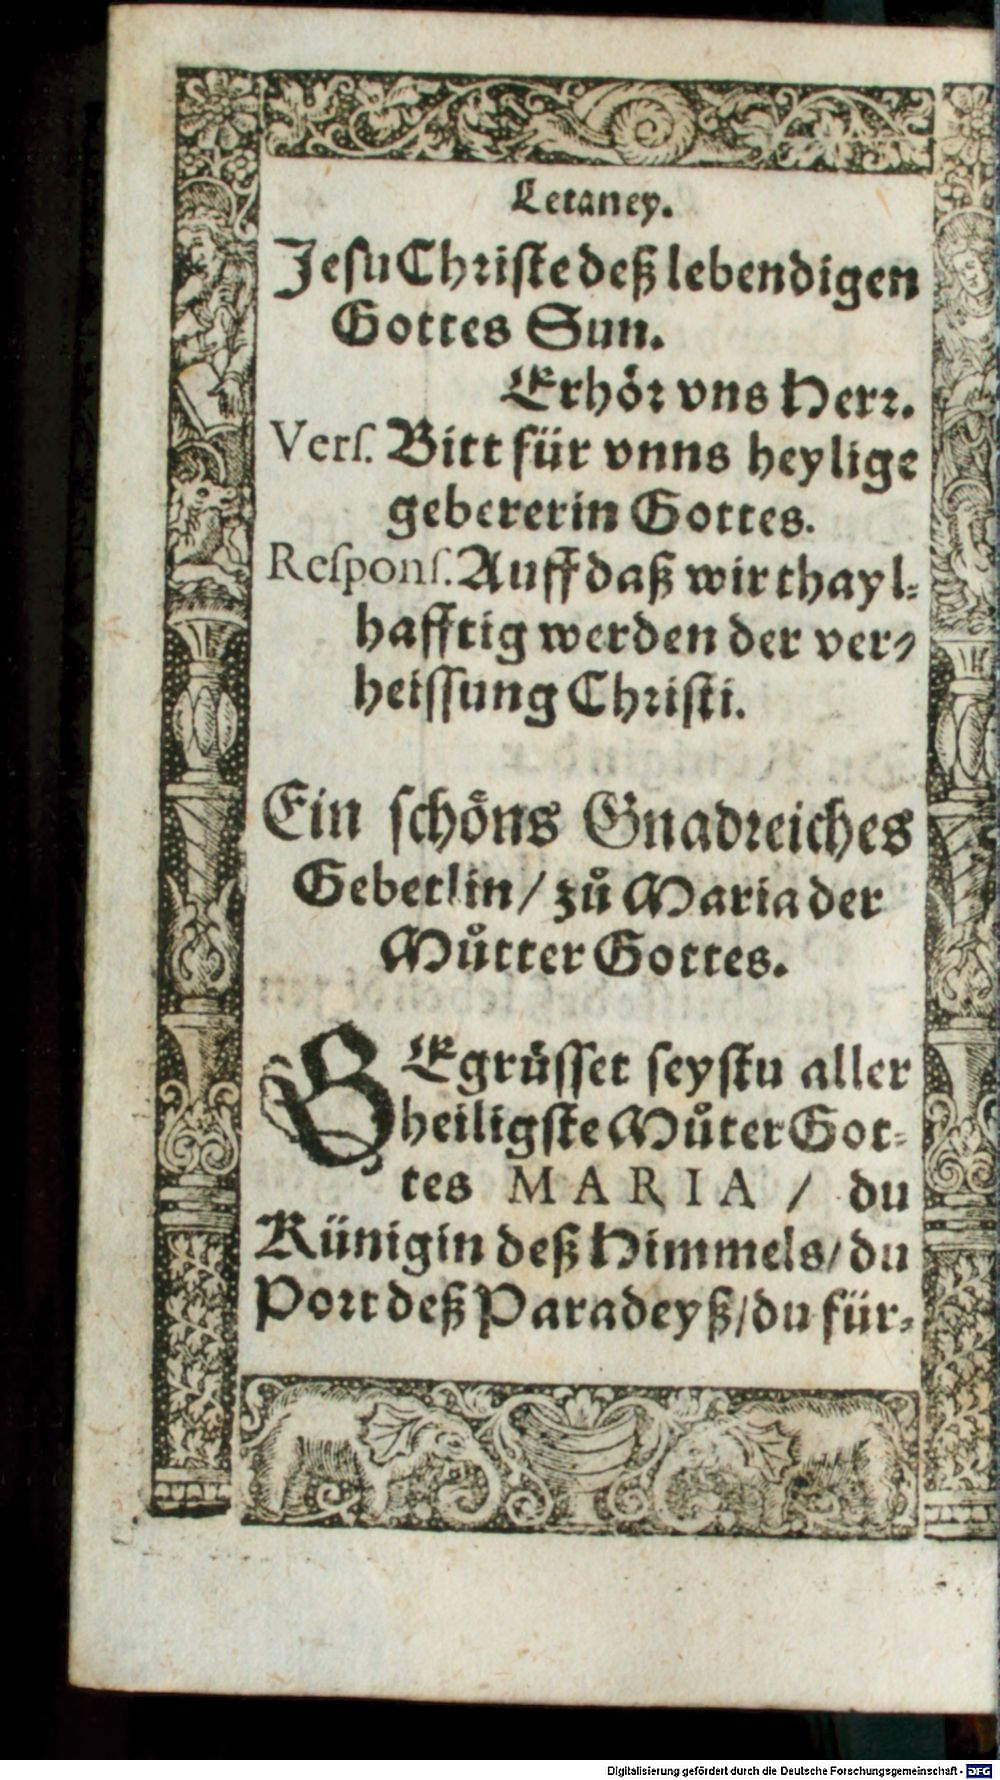 Letaney.
Jesu Christe deß lebendigen
Gottes Sun.
Erhör vns Herr.
Vers. Bitt für vnns heylige
gebererin Gottes.
Respons. Auff daß wir thayl-
hafftig werden der ver-
heissung Christi.
Ein schöns Gnadreiches
Gebetlin / zů Maria der
Můtter Gottes.
BEgrüsset seystu aller
heiligste Můter Got-
tes MARIA / du
Künigin deß Himmels / du
Port deß Paradeyß / du für-
Digitalisierung gefördert durch die Deutsche Forschungsgemeinschaft - DFG